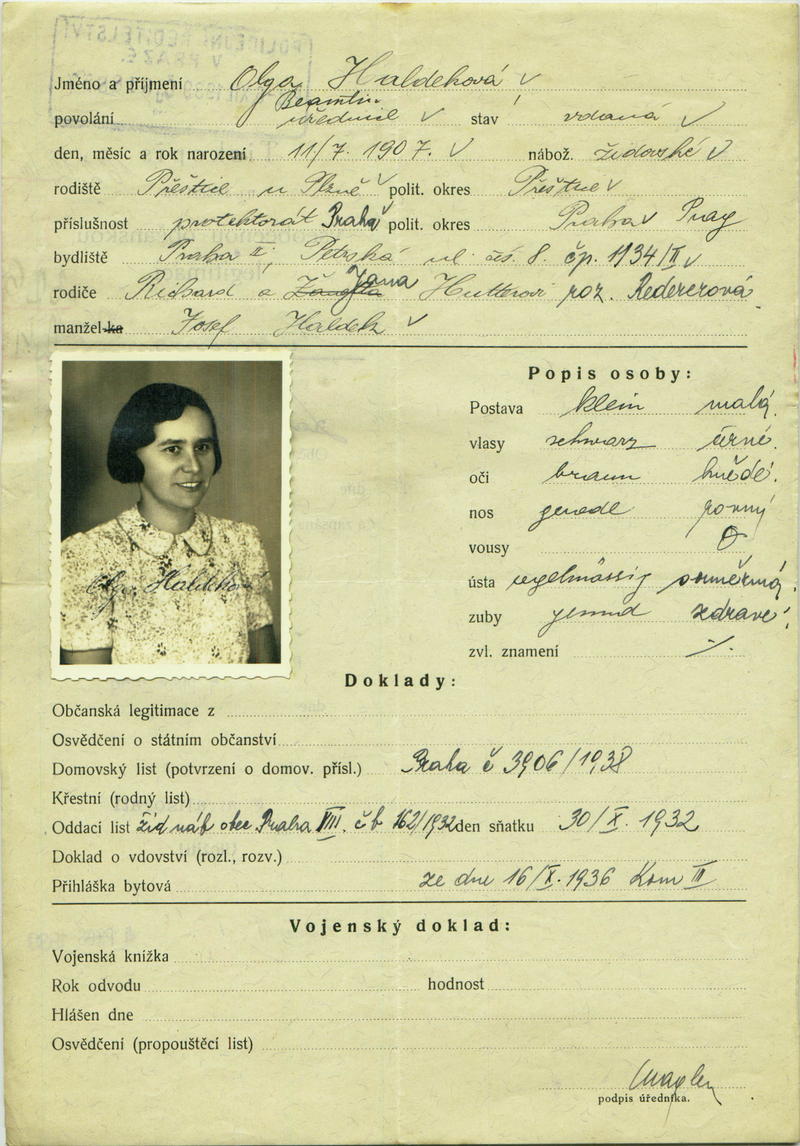 POLICEJNÍ ŘEDITELSTVÍ
V PRAZE
Jméno a příjmení Olga Haldeková
Beamtin
povolání úřednice stav vdaná
den, měsíc a rok narození 11/7. 1907. nábož. židovské
rodiště Přeštice u Plzně polit. okres Přeštice
příslušnost protektorát Praha polit. okres Praha Prag
bydliště Praha II, Petrská ul. čís. 8. čp. 1934/II
rodiče Richard a Jana Hutterovi roz. Redererová
manžel-ka Josef Haldek
Popis osoby:
Postava klein malá.
vlasy schwarz černé.
oči braun hnědé.
nos gerade rovný
vousy
ústa regelmässig souměrná.
zuby gesund zdravé.
zvl. znamení
Olga Haldeková
Doklady:
Občanská legitimace z
Osvědčení o státním občanství
Domovský list (potvrzení o domov. přísl.) Praha č 3906/1938
Křestní (rodný list)
Oddací list žid náb obec Praha VIII. čb 162/1932 den sňatku 30/X. 1932
Doklad o vdovství (rozl., rozv.)
Přihláška bytová ze dne 16/X. 1936 Kom II
Vojenský doklad:
Vojenská knížka
Rok odvodu hodnost
Hlášen dne
Osvědčení (propouštěcí list)
podpis úředníka.